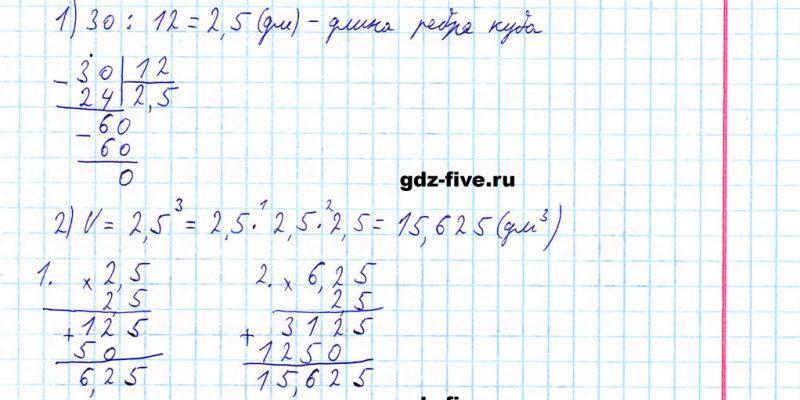 1) 30 : 12 = 2,5 (дм) – длина ребра куба
- 30 | 12
24 | 2,5
- 60
60
0
gdz-five.ru
2) V = 2,5³ = 2,5 ·¹ 2,5 ·² 2,5 = 15,625 (дм³)
1. × 2,5
2,5
+ 125
50
6,25
2. × 6,25
2,5
+ 3125
1250
15,625